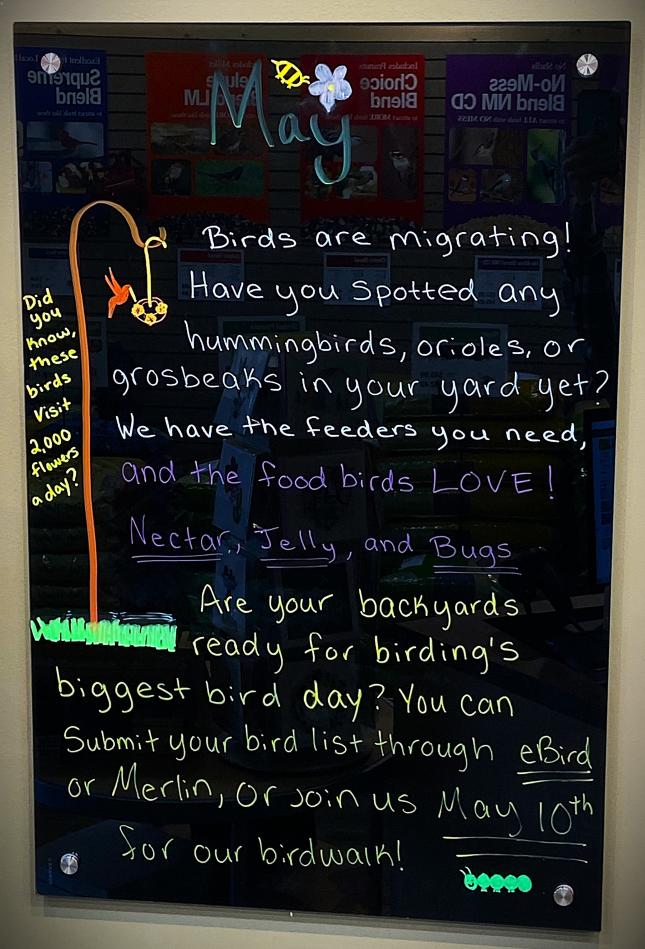 May
Birds are migrating!
Have you spotted any
hummingbirds, orioles, or
grosbeaks in your yard yet?
We have the feeders you need,
and the food birds LOVE!
Nectar, Jelly, and Bugs
Are your backyards
ready for birding's
biggest bird day? You can
Submit your bird list through eBird
or Merlin, or join us May 10th
for our birdwalk!
Did
you
know,
these
birds
visit
2,000
flowers
a day?
Supreme
Blend
Choice
Blend
No-Mess
Blend NM CD